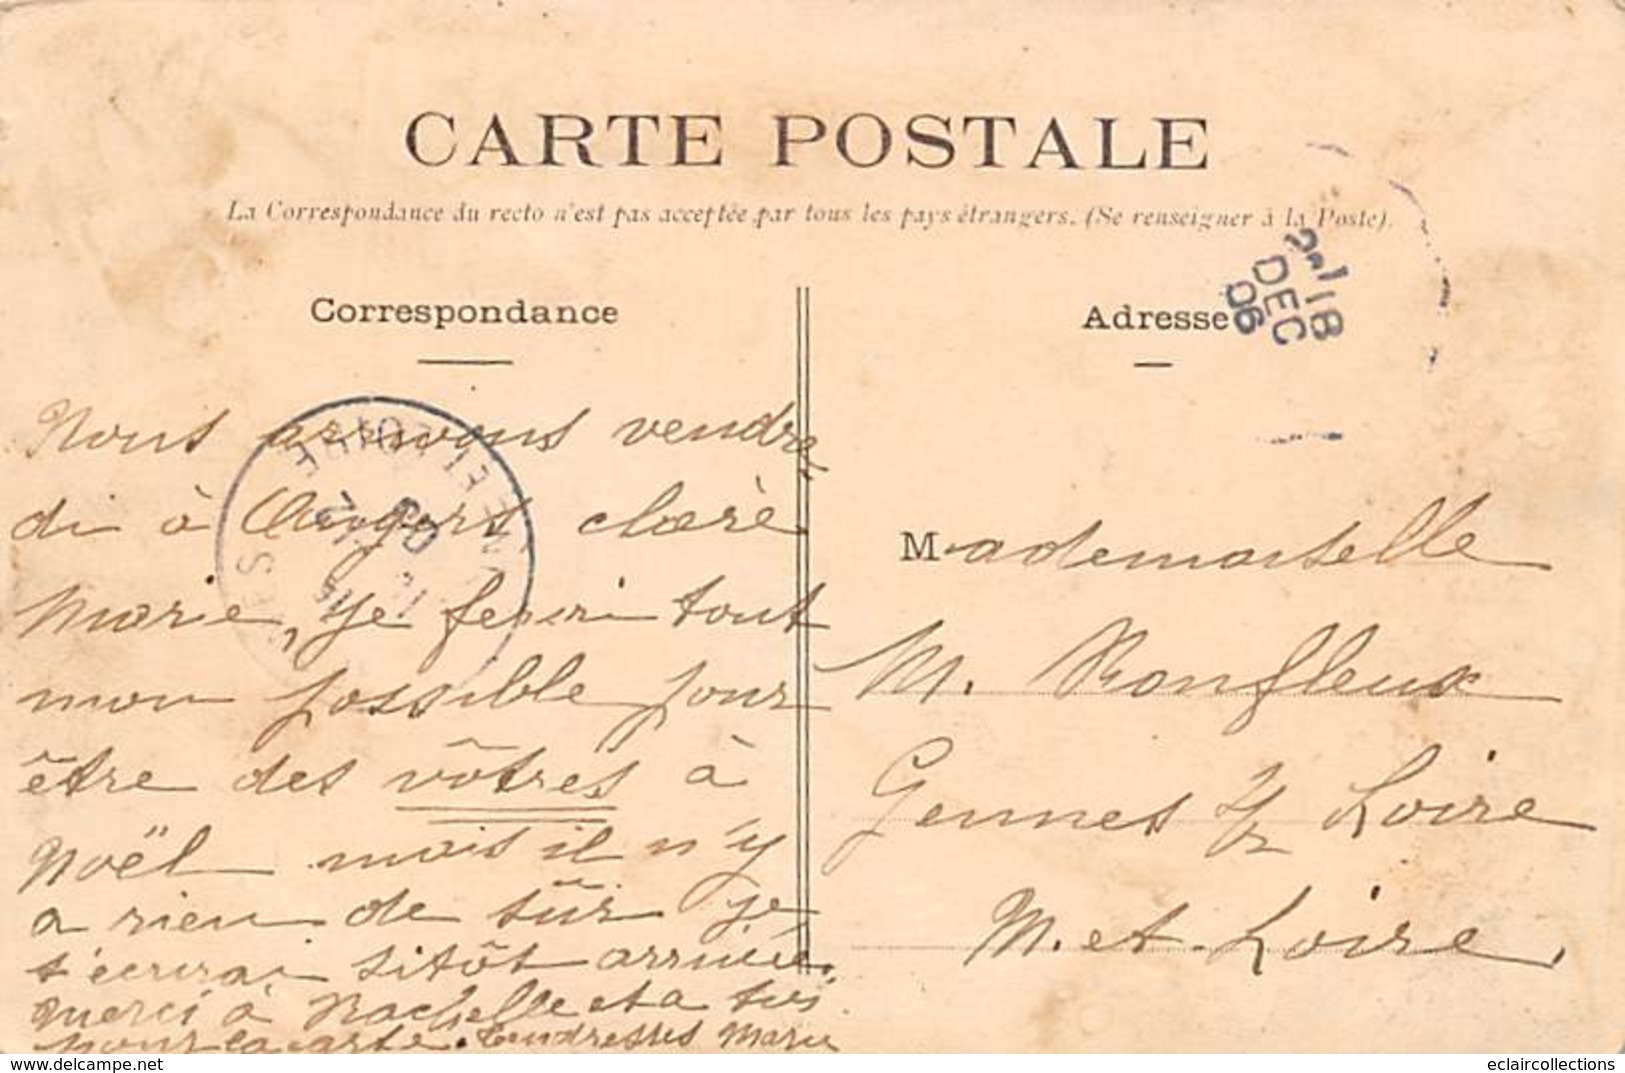 CARTE POSTALE
La Correspondance du recto n'est pas acceptée par tous les pays étrangers. (Se renseigner à la Poste).
Correspondance
Nous arrivons vendre
di à Angers chère
Marie, je ferai tout
mon possible pour
être des vôtres à
Noël mais il n'y
a rien de sûr je
t'écrirai sitôt arrivée.
Merci à Rachelle et à toi
pour la carte. Tendresses Marie
Adresse
18
DEC
06
Mademoiselle
M. Ronfleux
Gennes s/ Loire
M. et. Loire.
delcampe.net
eclaircollections